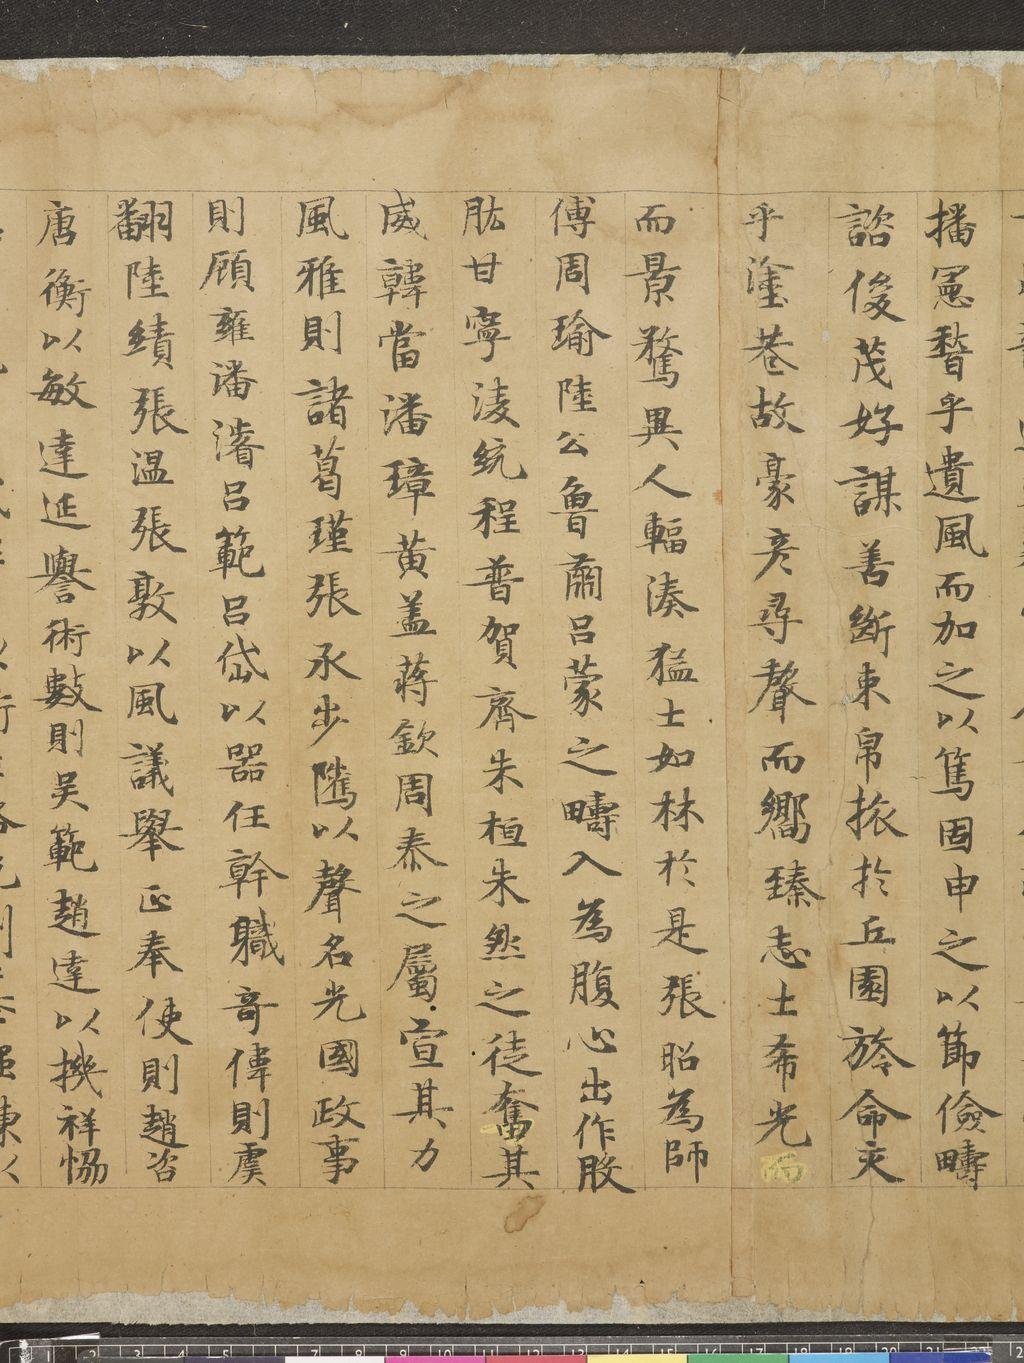 播憲稽乎遺風而加之以篤固申之以節儉疇
諮俊茂好謀善斷束帛旅於丘園旍命交
乎塗巷故豪彦尋聲而嚮臻志士希光而
而景騖異人輻湊猛士如林於是張昭為師
傅周瑜陸公魯肅呂蒙之疇入為腹心出作股
肱甘寧淩統程普賀齊朱桓朱然之徒奮其
威韓當潘璋黄盖蒋欽周泰之屬宣其力
風雅則諸葛瑾張承步騭以聲名光國政事
則顧雍潘濬呂範呂岱以器任幹職竒偉則虞
翻陸績張温張敦以風議舉正奉使則趙咨
唐衡以敏達延譽術數則吴範趙達以機祥恊